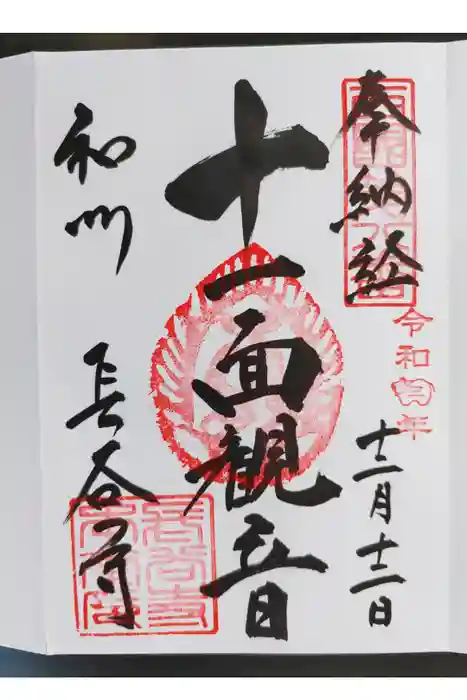 奉納経
令和年
十二月十二日
十一面観音
和州
長谷寺